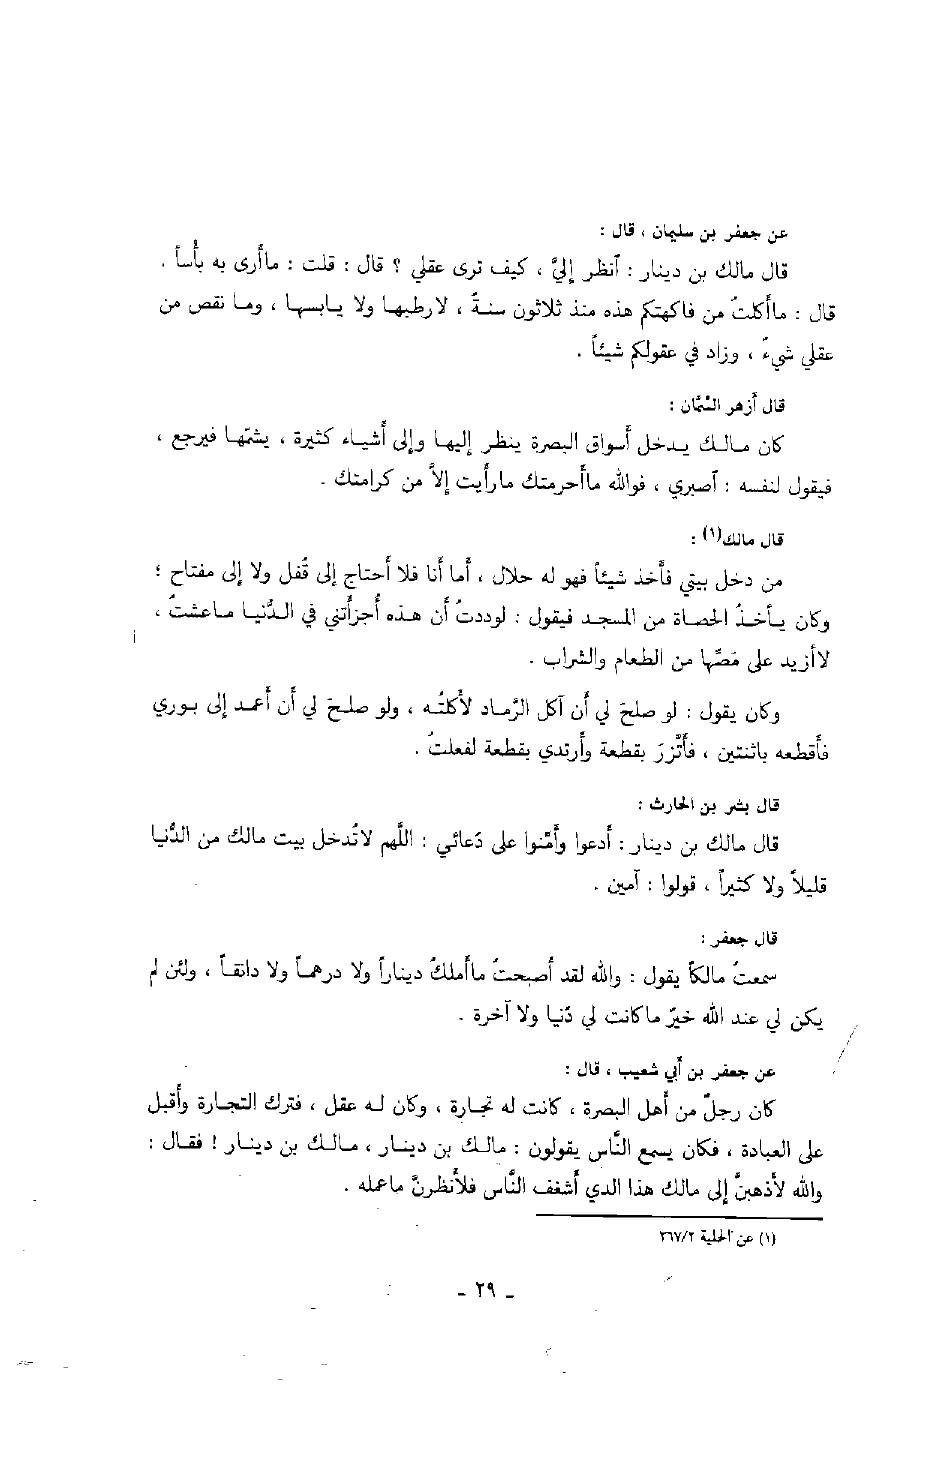 عن جعفر بن سليمان ، قال :
قال مالك بن دينار : آنظر إليَّ ، كيف ترى عقلي ؟ قال : قلت : ماأرى به بأساً .
قال : ماأكلتُ من فاكهتكم هذه منذ ثلاثون سنةً ، لارطبها ولا يابسها ، وما نقص من
عقلي شيءٌ ، وزاد في عقولكم شيئاً .
قال أزهر السَّمَّان :
كان مالك يدخل أسواق البصرة ينظر إليها وإلى أشياء كثيرة ، يشتهيها فيرجع ،
فيقول لنفسه : آصبري ، فوالله ماأحرمتك مارأيت إلاَّ من كرامتك .
قال مالك(١) :
من دخل بيتي فأخذ شيئاً فهو له حلال ، أما أنا فلا أحتاج إلى قُفل ولا إلى مفتاح ؛
وكان يأخذُ الحصاة من المسجد فيقول : لوددتُ أن هذه أجزأتني في الدُّنيا ماعشتُ ،
لاأزيد على مَصِّها من الطعام والشراب .
وكان يقول : لو صلحَ لي أن آكل الرَّماد لأكلتُه ، ولو صلحَ لي أن أعمد إلى بوري
فأقطعه باثنتين ، فأتَّزرَ بقطعة وأرتدي بقطعة لفعلتُ .
قال بشر بن الحارث :
قال مالك بن دينار : أدعوا وأمِّنوا على دُعائي : اللَّهم لاتُدخل بيت مالك من الدُّنيا
قليلاً ولا كثيراً ، قولوا : آمين .
قال جعفر :
سمعتُ مالكاً يقول : والله لقد أصبحتُ ماأملكُ ديناراً ولا درهماً ولا دانقاً ، ولئن لم
يكن لي عند الله خيرٌ ماكانت لي دُنيا ولا آخرة .
عن جعفر بن أبي شعيب ، قال :
كان رجلٌ من أهل البصرة ، كانت له تجارة ، وكان له عقل ، فترك التجارة وأقبل
على العبادة ، فكان يسمع النَّاس يقولون : مالك بن دينار ، مالك بن دينار ! فقال :
والله لأذهبنَّ إلى مالك هذا الذي أشغف النَّاس فلأنظرنَّ ماعمله .
(١) عن الحلية ٣٦٧/٢
- ٢٩ -